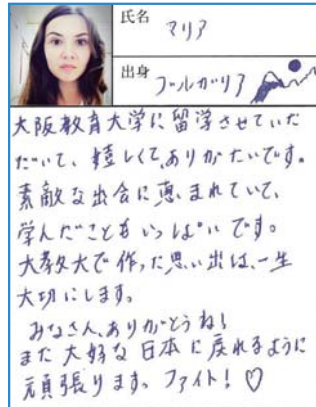 氏名 マリア
出身 ブルガリア
大阪教育大学に留学させていた
だいて、嬉しくて、ありがたいです。
素敵な出会に恵まれていて、
学んだこともいっぱいです。
大教大で作った思い出は、一生
大切にします。
みなさん、ありがとうね!
また大好な日本に戻れるように
頑張ります。ファイト!♡